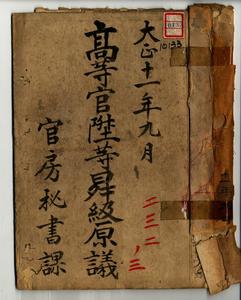 大正十一年九月
高等官陞等昇級原議
官房秘書課
二三二ノ三